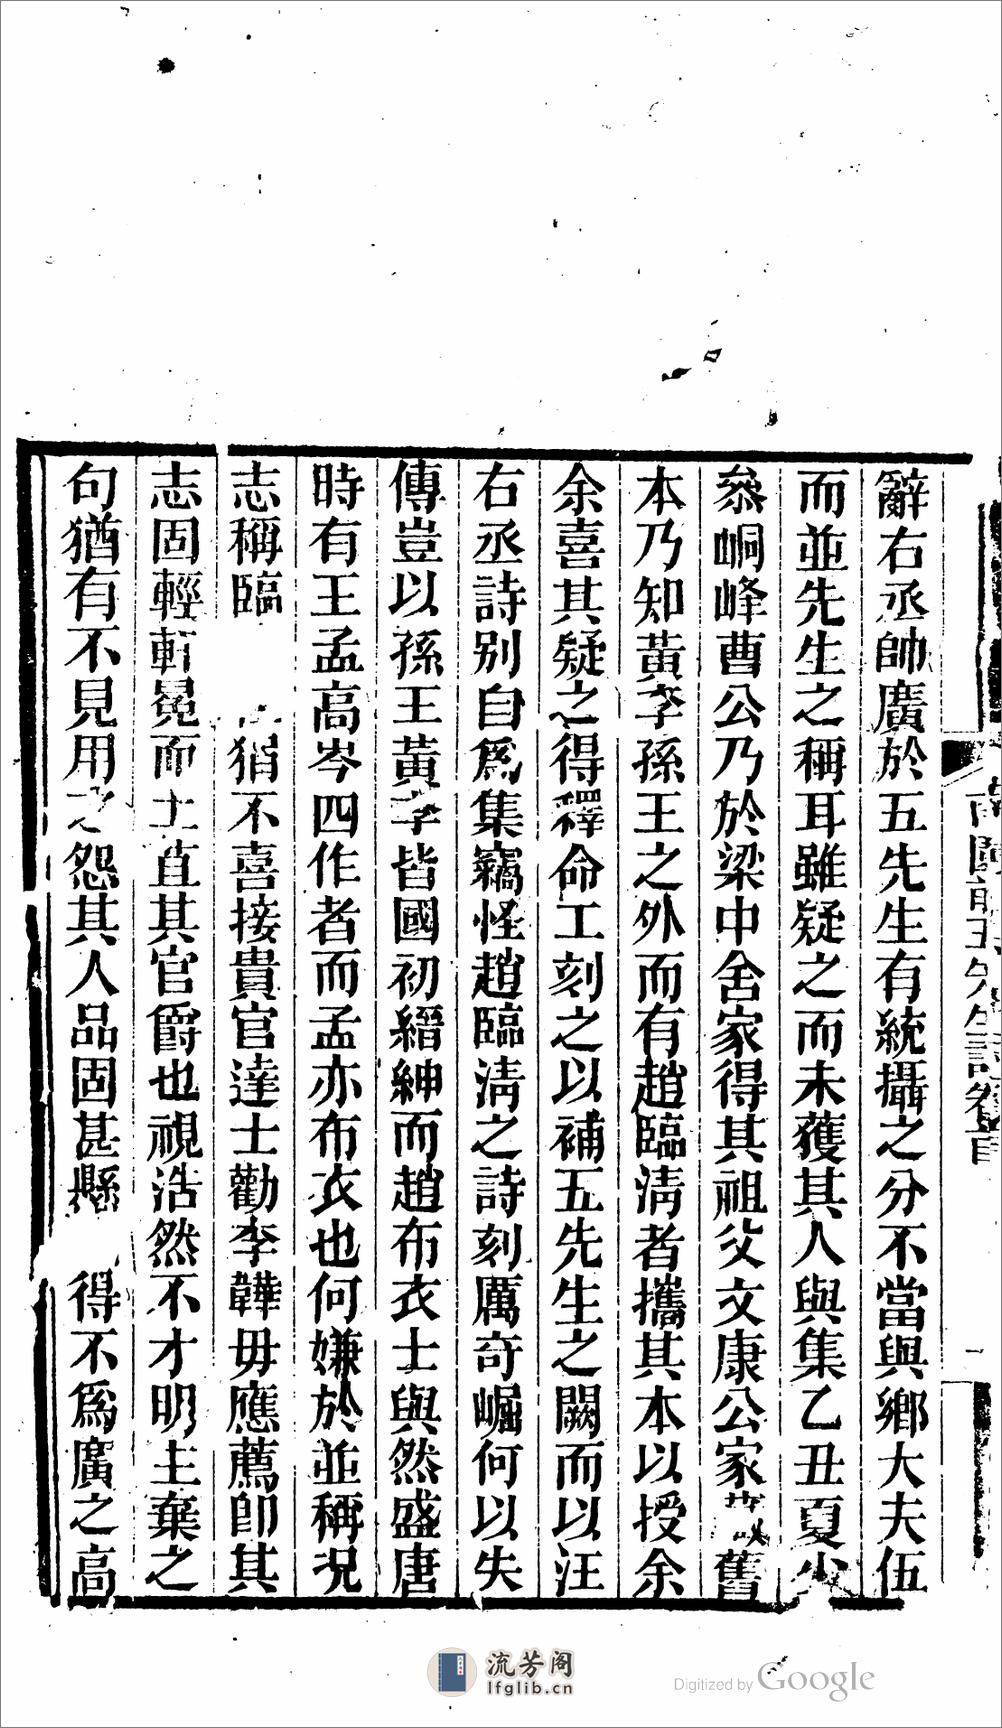 辭右丞帥廣於五先生有統攝之分不當與鄉大夫伍
而並先生之稱耳雖疑之而未獲其人與集乙丑夏少
叅峒峰曹公乃於梁中舍家得其祖父文康公家藏舊
本乃知黃李孫王之外而有趙臨清者攜其本以授余
余喜其疑之得釋命工刻之以補五先生之闕而以汪
右丞詩別自爲集竊怪趙臨清之詩刻厲奇崛何以失
傳豈以孫王黃李皆國初縉紳而趙布衣士與然盛唐
時有王孟高岑四作者而孟亦布衣也何嫌於並稱况
志稱臨猶不喜接貴官達士勸李韡毋應薦卽其
志固輕軒冕而土苴其官爵也視浩然不才明主棄之
句猶有不見用之怨其人品固甚懸得不爲廣之高
南園前五先生詩卷首
一
流芳阁
lfglib.cn
Digitized by Google